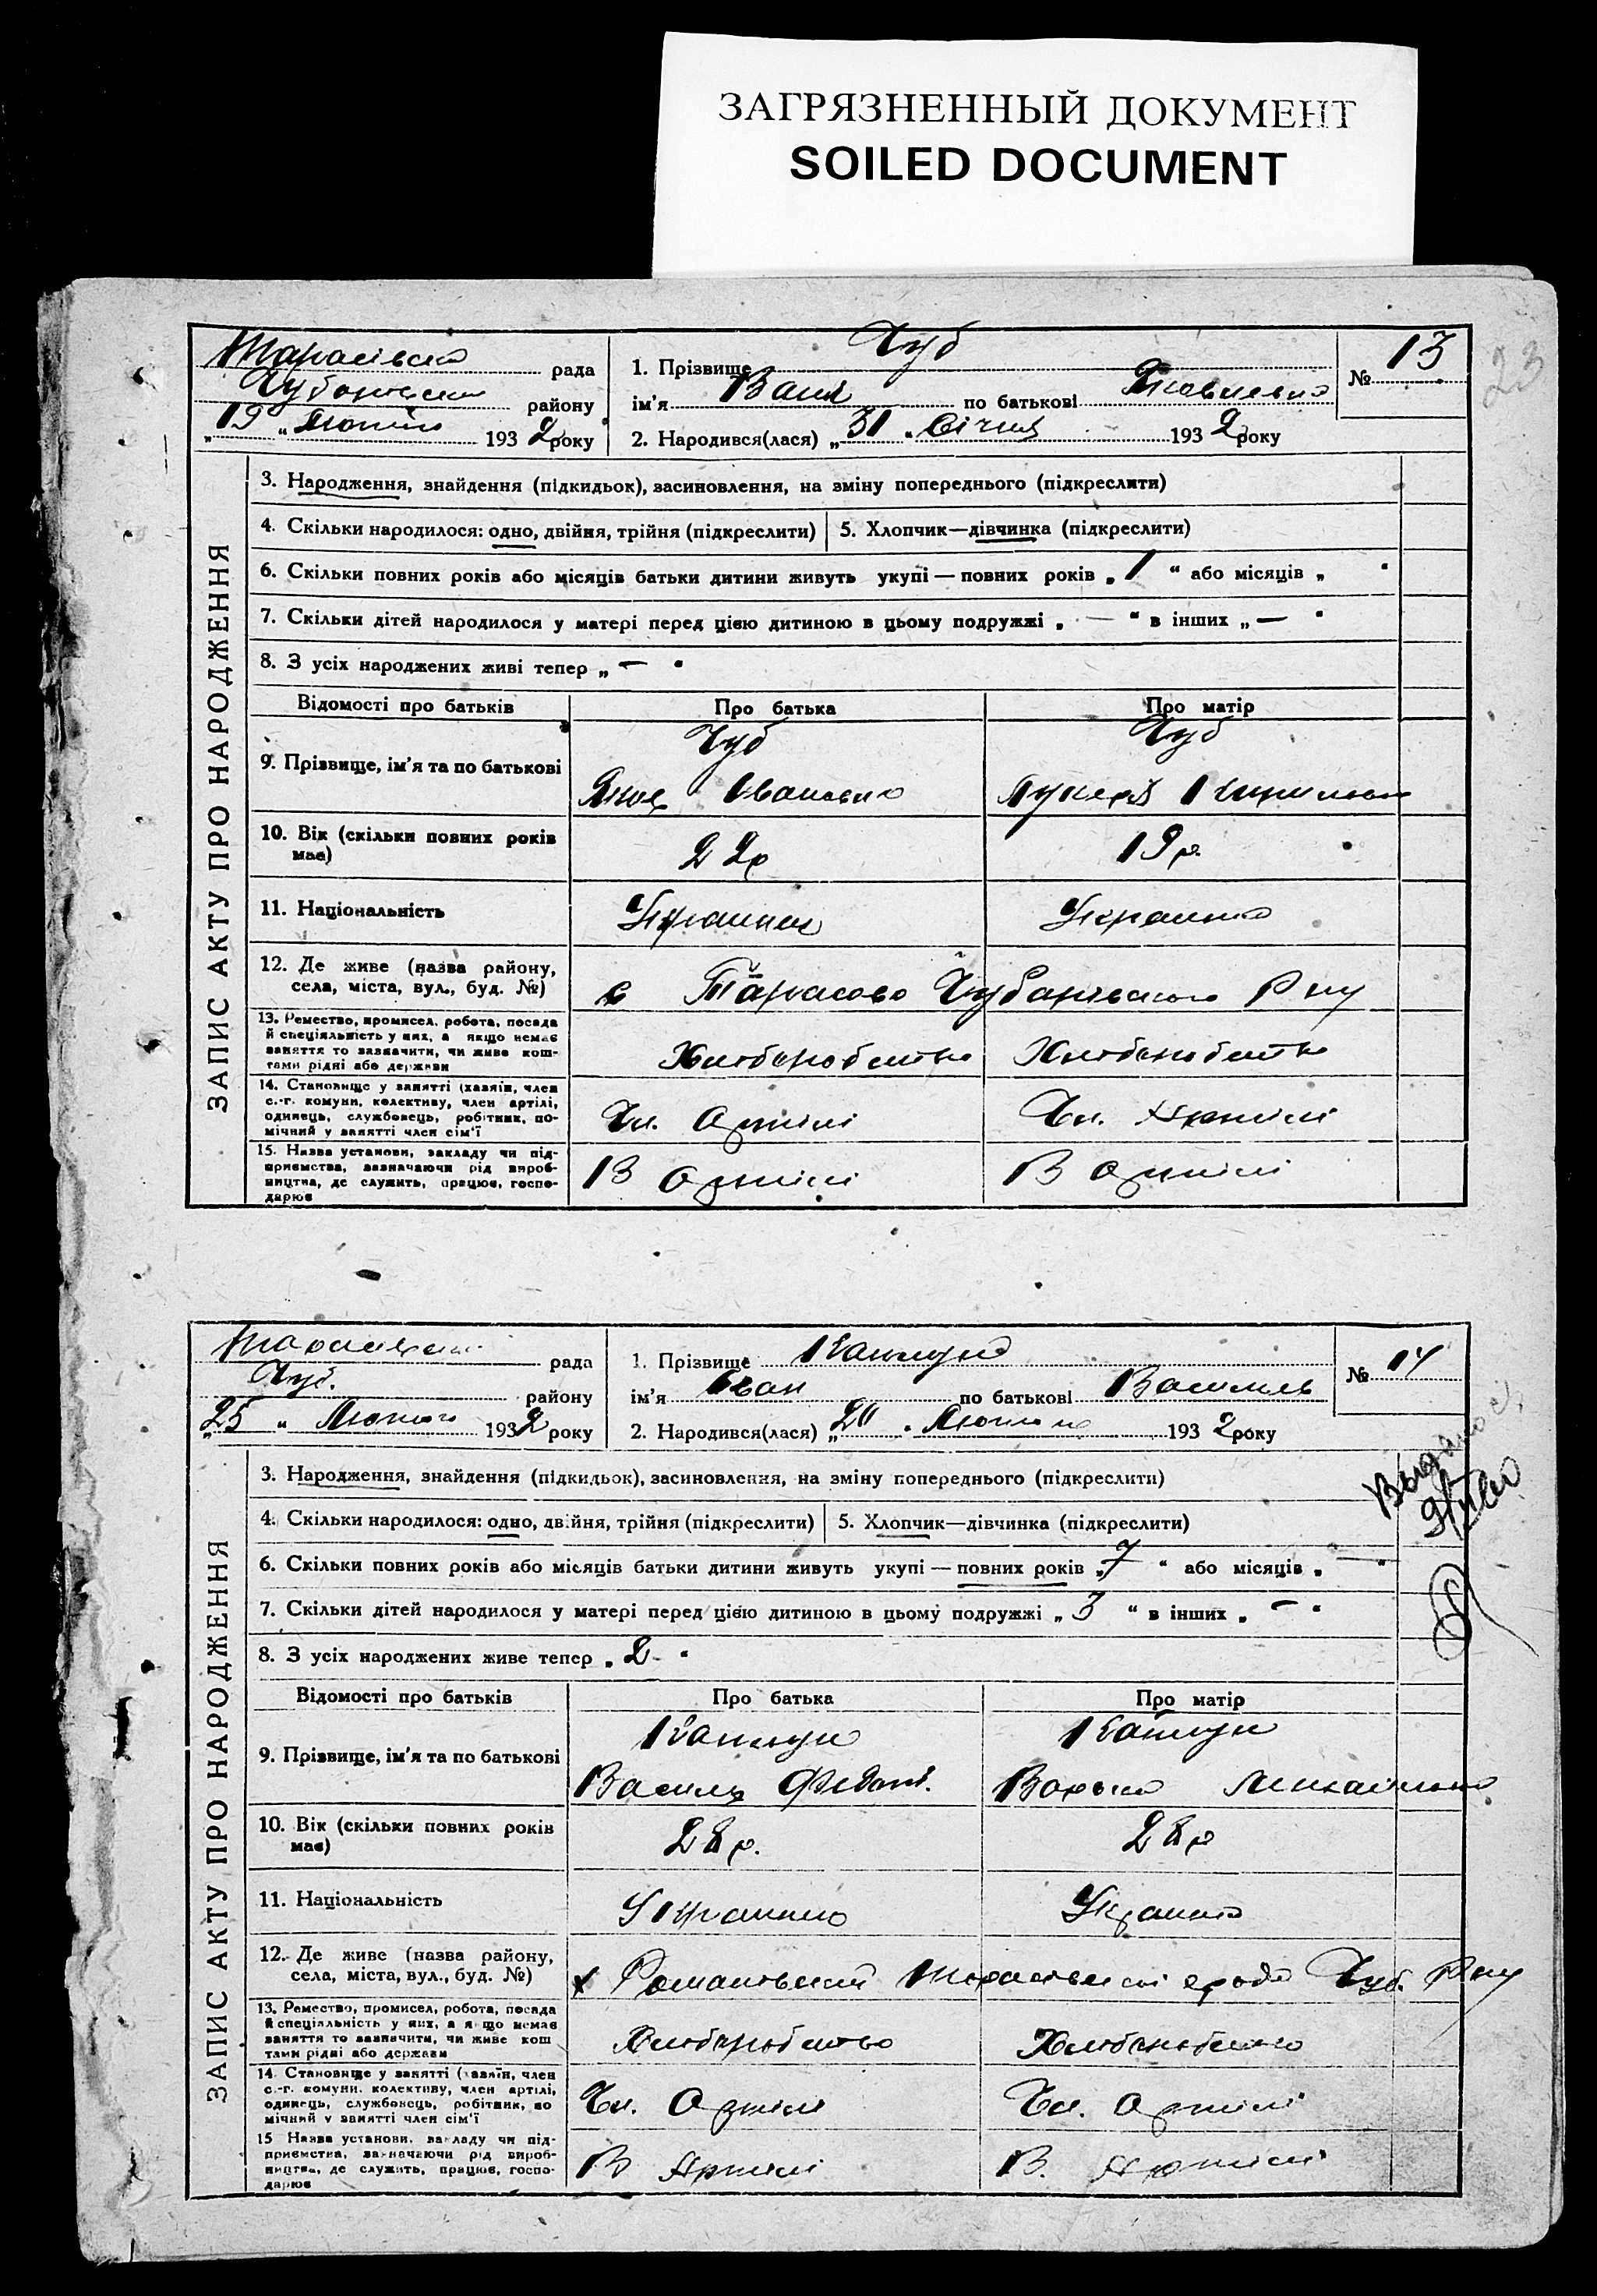 ЗАГРЯЗНЕННЫЙ ДОКУМЕНТ
SOILED DOCUMENT
23
Тарасівська рада
району
„19“ Лютого 1932 року
1. Прізвище Чуб
ім'я Ваня по батькові Яковлевна
2. Народився(лася) „31“ Січня 1932 року
№ 13
ЗАПИС АКТУ ПРО НАРОДЖЕННЯ
3. Народження, знайдення (підкидьок), засиновлення, на зміну попереднього (підкреслити)
4. Скільки народилося: одно, двійня, трійня (підкреслити) 5. Хлопчик—дівчинка (підкреслити)
6. Скільки повних років або місяців батьки дитини живуть укупі — повних років „1“ або місяців „ “
7. Скільки дітей народилося у матері перед цією дитиною в цьому подружжі „—“ в інших „—“
8. З усіх народжених живі тепер „—“
Відомості про батьків Про батька Про матір
9. Прізвище, ім'я та по батькові
Чуб Чуб
Яков
10. Вік (скільки повних років має)
22р 19р.
11. Національність
12. Де живе (назва району, села, міста, вул., буд. №)
с Тарасово Чубарівського Р ну
13. Ремество, промисел, робота, посада
й спеціяльність у них, а якщо немає
заняття то зазначити, чи живе кош-
тами рідні або держави
Хліборобство Хліборобство
14. Становище у занятті (хазяїн, член
с.-г. комуни, колективу, член артілі,
одинець, службовець, робітник, по-
мічний у занятті член сім'ї
Чл. Артілі Чл. Артілі
15. Назва установи, закладу чи під-
приємства, зазначаючи рід вироб-
ництва, де служить, працює, госпо-
дарює
В Артілі В Артілі
рада
Чуб. району
„25“ Лютого 1932 року
1. Прізвище
ім'я Іван по батькові Василь
2. Народився(лася) „20“ Лютого 1932 року
№ 14
ЗАПИС АКТУ ПРО НАРОДЖЕННЯ
3. Народження, знайдення (підкидьок), засиновлення, на зміну попереднього (підкреслити)
4. Скільки народилося: одно, двійня, трійня (підкреслити) 5. Хлопчик—дівчинка (підкреслити)
6. Скільки повних років або місяців батьки дитини живуть укупі — повних років „7“ або місяців „—“
7. Скільки дітей народилося у матері перед цією дитиною в цьому подружжі „3“ в інших „—“
8. З усіх народжених живе тепер „2“
Відомості про батьків Про батька Про матір
9. Прізвище, ім'я та по батькові
Василь
10. Вік (скільки повних років має)
28р. 28р
11. Національність
12. Де живе (назва району, села, міста, вул., буд. №)
х Романовский Чуб. Р ну
13. Ремество, промисел, робота, посада
й спеціяльність у них, а якщо немає
заняття то зазначити, чи живе кош
тами рідні або держави
Хліборобство Хліборобство
14. Становище у занятті (хазяїн, член
с.-г. комуни, колективу, член артілі,
одинець, службовець, робітник, по
мічний у занятті член сім'ї
Чл. Артілі Чл. Артілі
15 Назва установи, закладу чи під-
приємства, зазначаючи рід вироб-
ництва, де служить, працює, госпо-
дарює
В Артілі В. Артілі